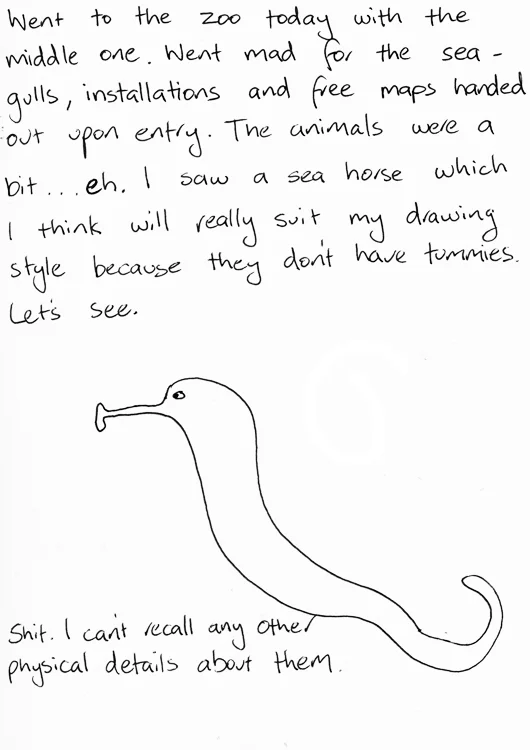 Went to the zoo today with the
middle one. Went mad for the sea-
gulls, installations and free maps handed
out upon entry. The animals were a
bit... eh. I saw a sea horse which
I think will really suit my drawing
style because they don't have tummies.
Let's see.
Shit. I can't recall any other
physical details about them.